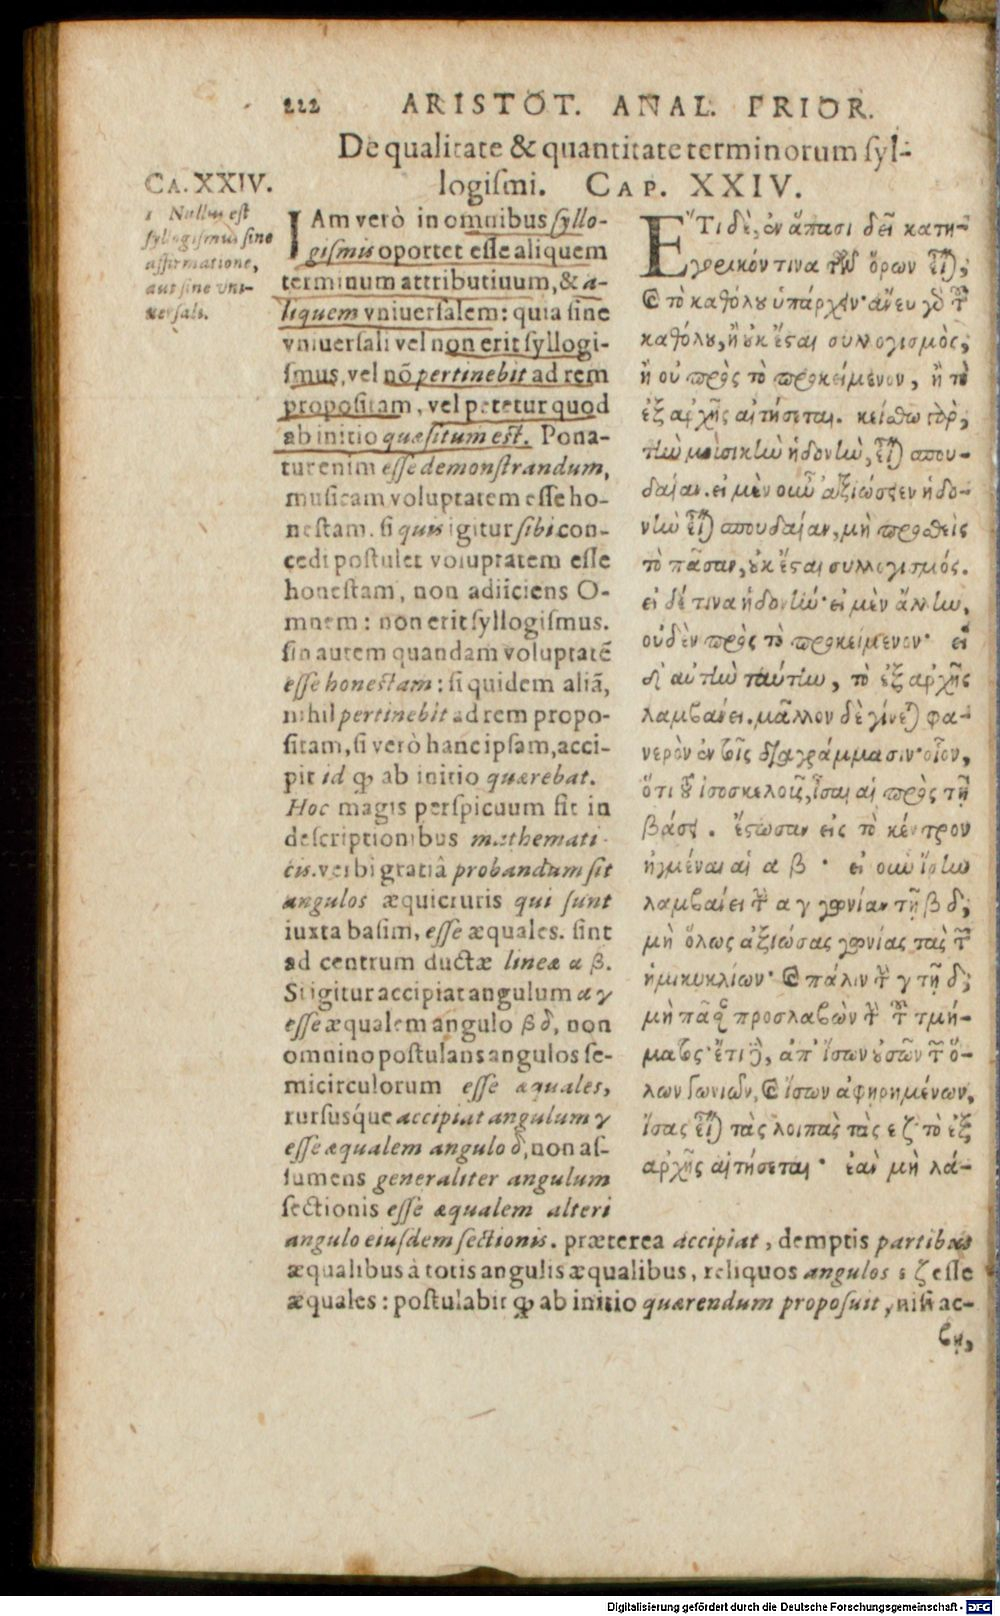 222 ARISTOT. ANAL. PRIOR.
De qualitate & quantitate terminorum syl-
logismi. CAP. XXIV.
CA. XXIV.
1 Nullus est
syllogismus sine
affirmatione,
aut sine vni-
uersali.
IAm verò in omnibus syllo-
gismis oportet esse aliquem
terminum attributiuum, & a-
liquem vniuersalem: quia sine
vniuersali vel non erit syllogi-
smus, vel nō pertinebit ad rem
propositam, vel petetur quod
ab initio quæsitum est. Pona-
tur enim esse demonstrandum,
musicam voluptatem esse ho-
nestam. si quis igitur sibi con-
cedi postulet voluptatem esse
honestam, non adiiciens O-
mnem: non erit syllogismus.
sin autem quandam voluptatē
esse honestam: si quidem aliā,
nihil pertinebit ad rem propo-
sitam, si verò hanc ipsam, acci-
pit id qđ ab initio quærebat.
Hoc magis perspicuum fit in
descriptionibus mathemati-
cis. verbi gratiâ probandum sit
angulos æquicruris qui sunt
iuxta basim, esse æquales. sint
ad centrum ductæ lineæ α β.
Si igitur accipiat angulum α γ
esse æqualem angulo β δ, non
omnino postulans angulos se-
micirculorum esse æquales,
rursusque accipiat angulum γ
esse æqualem angulo δ, non as-
sumens generaliter angulum
sectionis esse æqualem alteri
angulo eiusdem sectionis. præterea accipiat, demptis partibus
æqualibus à totis angulis æqualibus, reliquos angulos ε ζ esse
æquales: postulabit qđ ab initio quærendum proposuit, nisi ac-
ἜΤι δὲ, ἐν ἅπασι δεῖ κατη-
γορικόν τινα τῶν ὅρων εἶναι,
καὶ τὸ καθόλου ὑπάρχειν· ἄνευ γὸ τοῦ
καθόλου, ἢ οὐκ ἔσται συλλογισμὸς,
ἢ οὐ πρὸς τὸ προκείμενον, ἢ τὸ
ἐξ ἀρχῆς αἰτήσεται. κείσθω γὰρ,
τὴν μουσικὴν ἡδονὴν, εἶναι σπου-
δαίαν. εἰ μὲν οὖν ἀξιώσειεν ἡδο-
νὴν εἶναι σπουδαίαν, μὴ προσθεὶς
τὸ πᾶσαν, οὐκ ἔσται συλλογισμός.
εἰ δέ τινα ἡδονήν· εἰ μὲν ἄλλην,
οὐδὲν πρὸς τὸ προκείμενον· εἰ
δὲ αὐτὴν ταύτην, τὸ ἐξ ἀρχῆς
λαμβάνει. μᾶλλον δὲ γίνεται φα-
νερὸν ἐν τοῖς διαγράμμασιν· οἷον,
ὅτι τοῦ ἰσοσκελοῦς, ἴσαι αἱ πρὸς τῇ
βάσει. ἔστωσαν εἰς τὸ κέντρον
ἠγμέναι αἱ α β · εἰ οὖν ἴσην
λαμβάνει τὴν α γ γωνίαν τῇ β δ,
μὴ ὅλως ἀξιώσας γωνίας τὰς τῶν
ἡμικυκλίων· καὶ πάλιν τὴν γ τῇ δ,
μὴ πᾶσαν προσλαβὼν τὴν τοῦ τμή-
ματος· ἔτι δὲ, ἀπ' ἴσων οὐσῶν τῶν ὅ-
λων γωνιῶν, καὶ ἴσων ἀφῃρημένων,
ἴσας εἶναι τὰς λοιπὰς τὰς ε ζ· τὸ ἐξ
ἀρχῆς αἰτήσεται· ἐὰν μὴ λά-
βῃ,
Digitalisierung gefördert durch die Deutsche Forschungsgemeinschaft - DFG